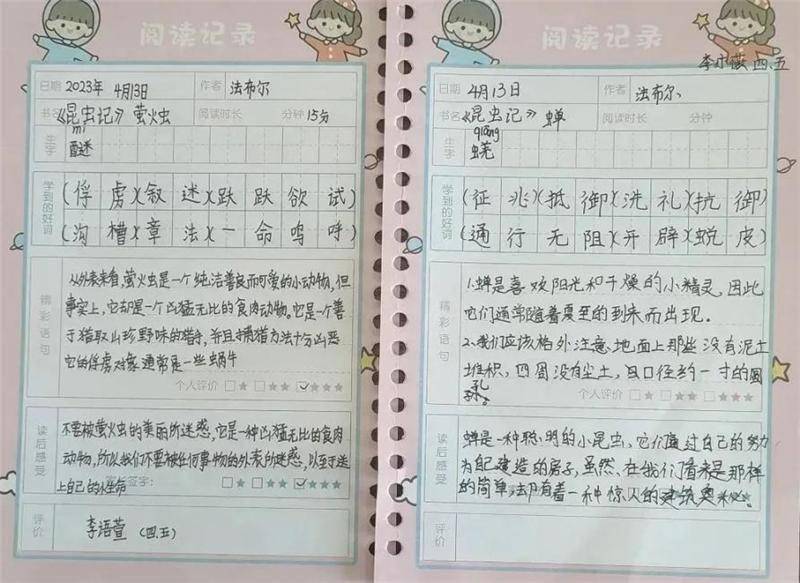 阅读记录
日期 2023年 4月13日 作者 法布尔
书名 《昆虫记》萤火虫 阅读时长 分钟 15分
mí
生字 谜
学到的好词
(俘虏)(叙迷)(跃跃欲试)
(沟槽)(章法)(一命呜呼)
精彩语句
从外表来看,萤火虫是一个纯洁善良而可爱的小动物,但
事实上,它却是一个凶猛无比的食肉动物。它是一个善
于猎取山珍野味的猎手,并且捕猎方法十分凶恶
它的俘虏对象通常是一些蜗牛
个人评价 □★ □★★ ☑★★★
读后感受
不要被萤火虫的美丽所迷惑,它是一种凶猛无比的食肉
动物,所以我们不要被任何事物的外表所迷惑,以至于送
上自己的性命
签字: □★ □★★ ☑★★★
评价
李语萱 (四.五)
阅读记录
四.五
日期 4月13日 作者 法布尔
书名 《昆虫记》蝉 阅读时长 分钟
qiāng
生字 蜣
学到的好词
(征兆)(抵御)(洗礼)(抗御)
(通行无阻)(开辟)(蜕皮)
精彩语句
1.蝉是喜欢阳光和干燥的小精灵,因此
它们通常随着夏至的到来而出现.
2.我们应该格外注意地面上那些没有泥土
堆积,四周没有尘土,且口径约一寸的圆
孔
个人评价 □★ □★★ □★★★
读后感受
蝉是一种聪明的小昆虫,它们通过自己的努力
为自己建造的房子,虽然,在我们看来是那样
的简单,却有着一种惊人的建筑奥秘。
评价